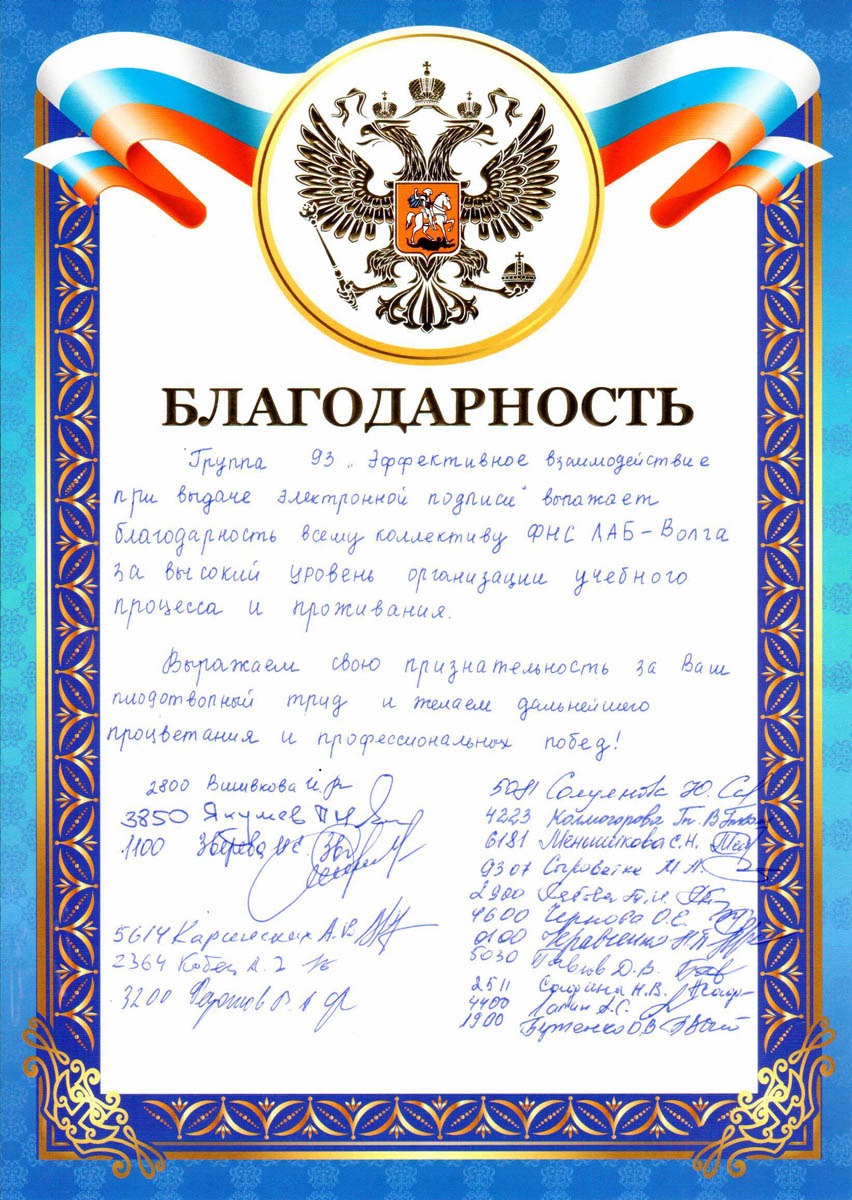 БЛАГОДАРНОСТЬ
Группа 93 „Эффективное взаимодействие
при выдаче электронной подписи" выражает
благодарность всему коллективу ФНС ЛАБ-Волга
за высокий уровень организации учебного
процесса и проживания.
Выражаем свою признательность за Ваш
плодотворный труд и желаем дальнейшего
процветания и профессиональных побед!
2800 Вишивкова
3850 Якушев
1100 Зверева
5614 А.В.
2364 Кобец А.
3200
5081 Ю.
4223 Колмогорова
6181 Меньшикова С.Н.
9307 М.А.
2900
4600 Чернова О.Е.
0100 Кравченко
5030 Павлов Д.В.
2511 Н.В.
4400 Лапин А.С.
1900 Бутенко О.В.